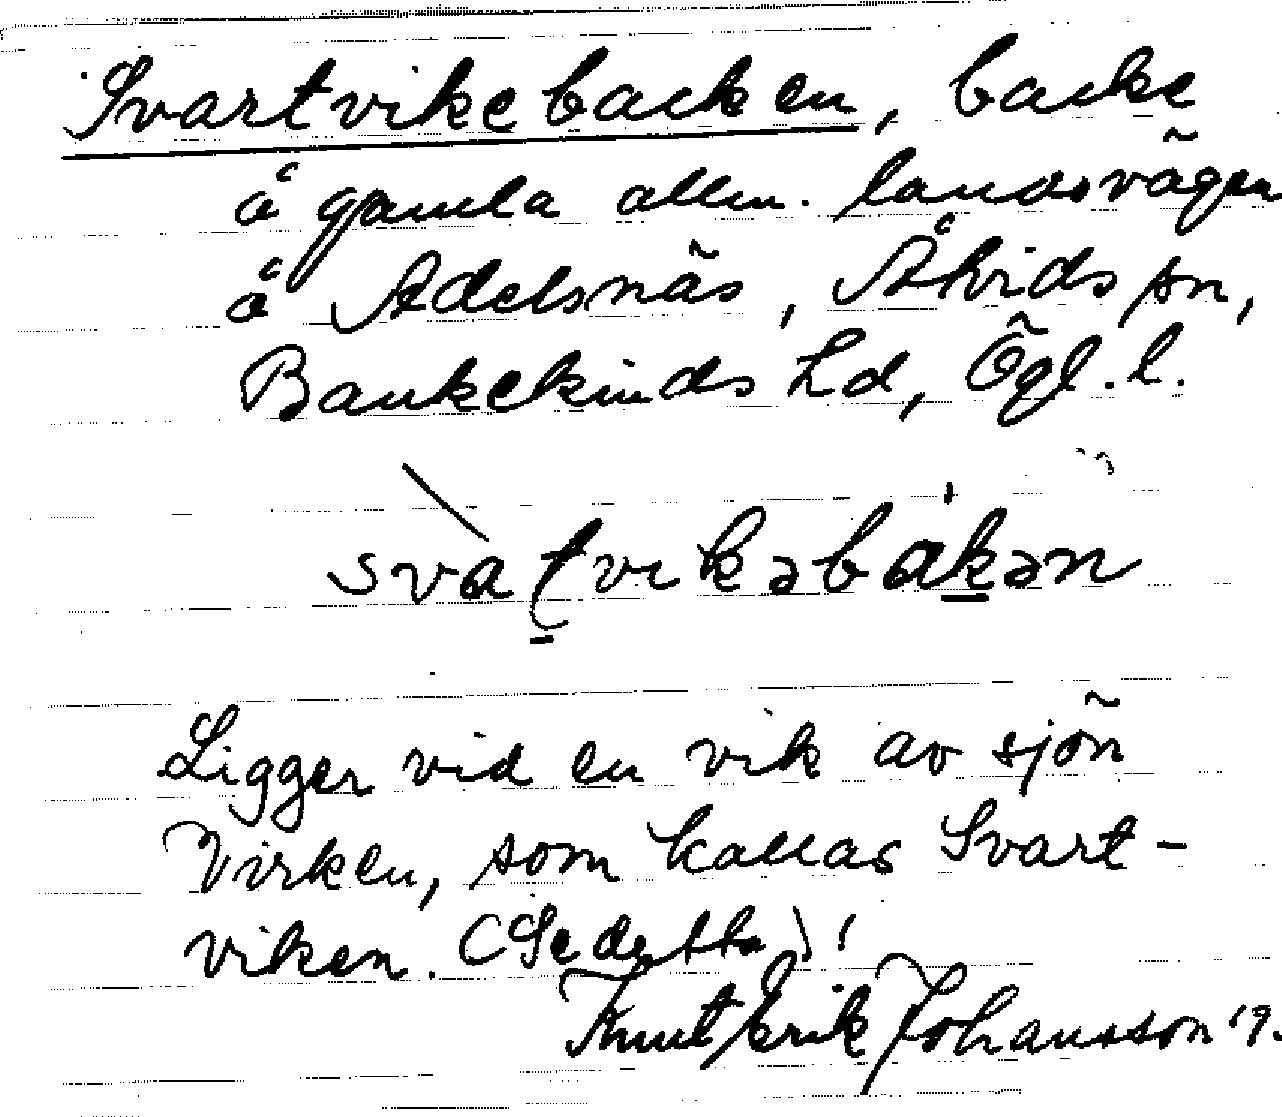 Svartvikebacken, backe
å gamla allm. landsvägen
å Adelsnäs, Åtvids sn,
Bankekinds hd, Ögl. l.
svat̠vikəbak̠ən
Ligger vid en vik av sjön
Virken, som kallas Svart-
viken. (Se detta)!
Knut Erik Johansson 19.